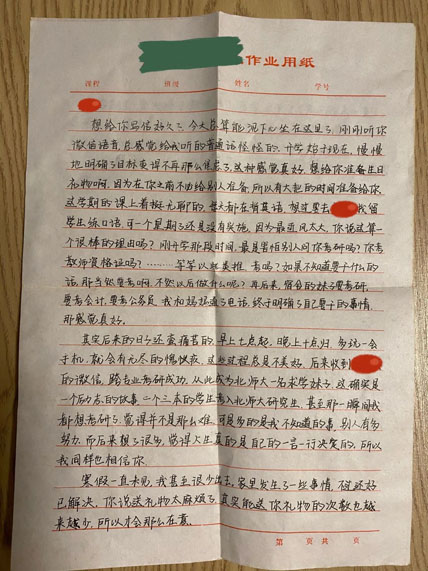 作业用纸
课程 班级 姓名 学号
想给你写信好久了,今天总算能沉下心坐在这里了,刚刚听你
微信语音,总感觉给我听的普通话怪怪的。开学始于现在,慢慢
地明确了目标变得不再那么焦虑了,这种感觉真好。想给你准备生日
礼物啊,因为在你之前不功给别人准备,所以有大把的时间准备给你
这学期的课上着挺无聊的,每天都在背英语,想过要去 找留
学生练口语,可一个星期了还是没有实施,因为最近风太大,你说这算一
个很棒的理由吗?刚开学那段时间,最是害怕别人问你考研吗?你考
教师资格证吗?………等等以此类推 考吗?如果不知道要干什么的
话,那当然要考啊,不然以后做什么呢?再后来,宿舍的妹子要考研,
要考会计,要考公务员,我和妈妈通了电话,终于明确了自己要干的事情,
那感觉真好。
其实后来的日子还蛮痛苦的,早上七点起,晚上十点归,多玩一会
手机,就会有无尽的愧疚感,这些过程总是不美好,后来收到
的微信,跨专业考研成功,从此成为北师大一名求学妹子,这确实是
一个励志的故事,二个三本的学生考入北师大研究生,甚至那一瞬间我
都想考研了,觉得并不是那么难,可是多的是我不知道的事,别人有多
努力,而后来想了很多,觉得人生真的是自己的一言一行决定的,所以
我同样也相信你。
寒假一直卡见,我甚至很少出去,家里发生了一些事情,不过还好
已解决,你说送礼物太麻烦了,其实能送你礼物的次数也越
来越少,所以才会那么在意。
第 页 共 页